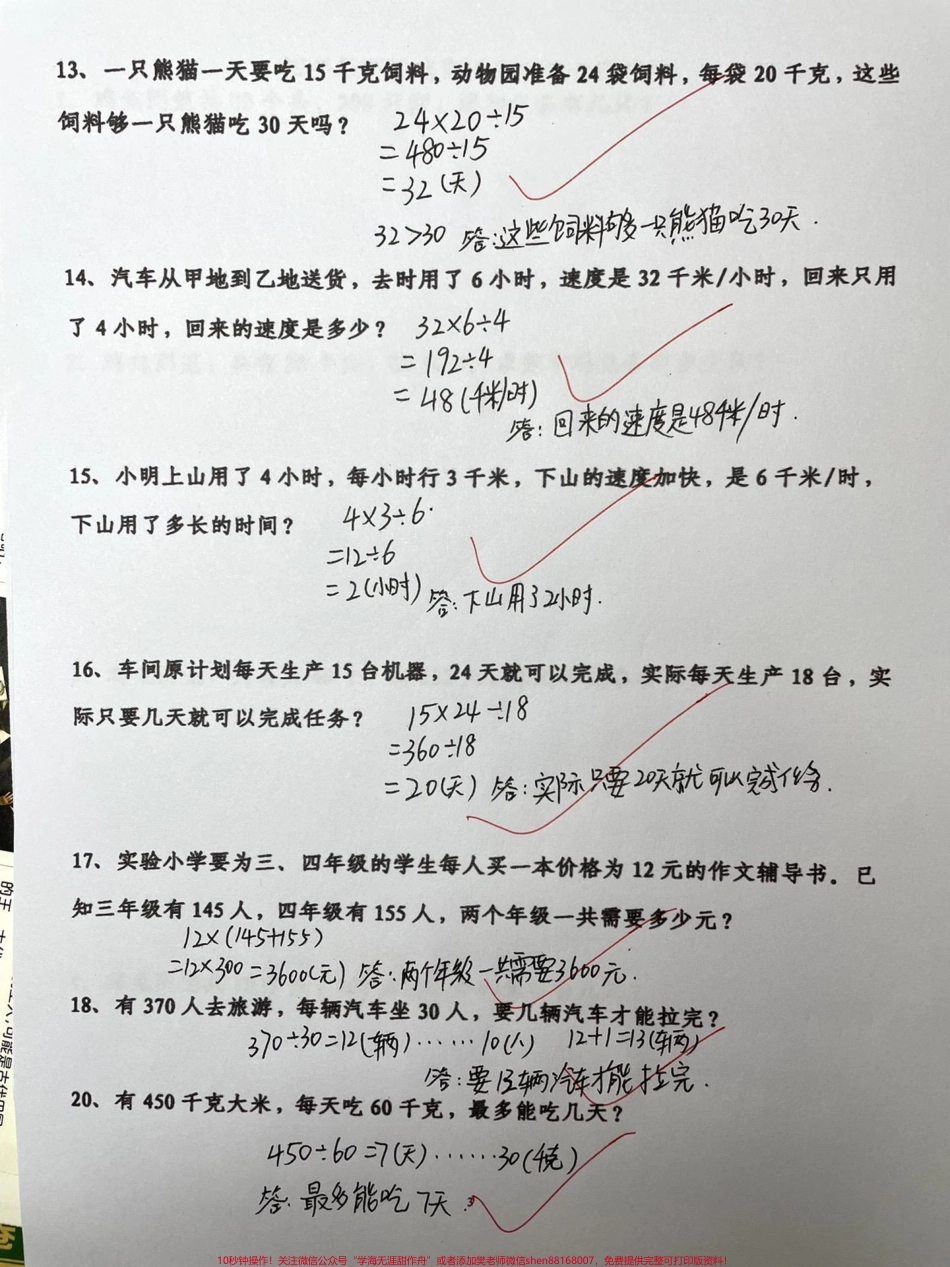 13、一只熊猫一天要吃 15 千克饲料，动物园准备 24 袋饲料，每袋 20 千克，这些
饲料够一只熊猫吃 30 天吗？ 24×20÷15
=480÷15
=32(天)
32>30 答:这些饲料够一只熊猫吃30天.
14、汽车从甲地到乙地送货，去时用了 6 小时，速度是 32 千米/小时，回来只用
了 4 小时，回来的速度是多少？ 32×6÷4
=192÷4
=48(千米/时)
答:回来的速度是48千米/时.
15、小明上山用了 4 小时，每小时行 3 千米，下山的速度加快，是 6 千米/时，
下山用了多长的时间？ 4×3÷6
=12÷6
=2(小时) 答:下山用了2小时.
16、车间原计划每天生产 15 台机器，24 天就可以完成，实际每天生产 18 台，实
际只要几天就可以完成任务？ 15×24÷18
=360÷18
=20(天) 答:实际只要20天就可以完成任务.
17、实验小学要为三、四年级的学生每人买一本价格为 12 元的作文辅导书。已
知三年级有 145 人，四年级有 155 人，两个年级一共需要多少元？
12×(145+155)
=12×300=3600(元) 答:两个年级一共需要3600元.
18、有 370 人去旅游，每辆汽车坐 30 人，要几辆汽车才能拉完？
370÷30=12(辆)……10(人) 12+1=13(辆)
答:要13辆汽车才能拉完.
20、有 450 千克大米，每天吃 60 千克，最多能吃几天？
450÷60=7(天)……30(千克)
答:最多能吃7天.
10秒钟操作！关注微信公众号“学海无涯甜作舟”或者添加樊老师微信shen88168007，免费提供完整可打印版资料！